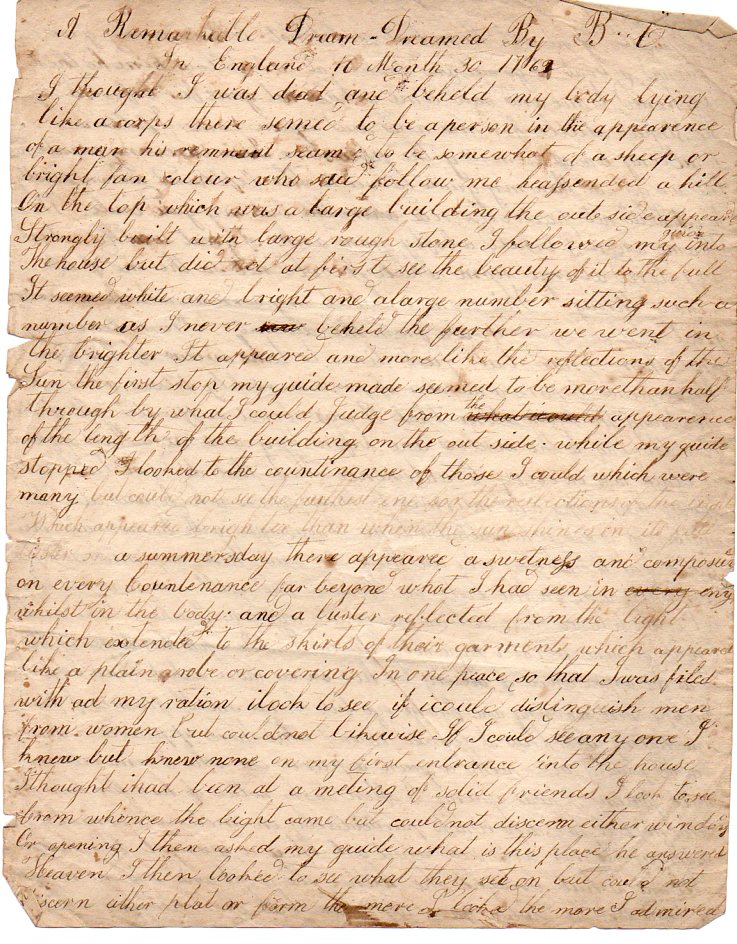 A Remarkable Dream - Dreamed By B.. C
In England 11 Month 30 1762
I thought I was dead and beheld my body lying
like a corps there semed to be a person in the appearence
of a man his remnant seamed to be somewhat of a sheep or
bright fan colour who said follow me heassended a hill
On the top which was a large building the out side appeard
Strongly built with large rough stone I followed my guide into
The house but did not at first see the beauty of it to the full
It seemed white and bright and alarge number sitting such a
number as I never saw beheld the further we went in
the brighter It appeared and more like the reflections of the
Sun the first stop my guide made seemed to be morethanhalf
through by what I could Judge from the appearence
of the length of the building on the out side. while my guide
stopped I looked to the countinance of those I could which were
many but could not see the farthest end for the reflections of the light
Which appeared brighter than when the sun shines in its full
luster on a summersday there appeared a swetness and composure
on every Countenance far beyond what I had seen in every any
whilst in the body. and a luster reflected from the light
which extended to the skirts of their garments which appeared
like a plain robe or covering In one peace so that I was filed
with ad my ration ilook to see if icould distinguish men
from women but couldnot likewise If I could see any one I
knew but knew none on my first entrance into the house
I thought ihad been at a meting of solid friends I look to see
from whence the light came but couldnot discern either window
Or opening I then asked my guide what is this place he answered
Heaven I then looked to see what they set on but could not
scern either plat or form the more I looked the more I admired